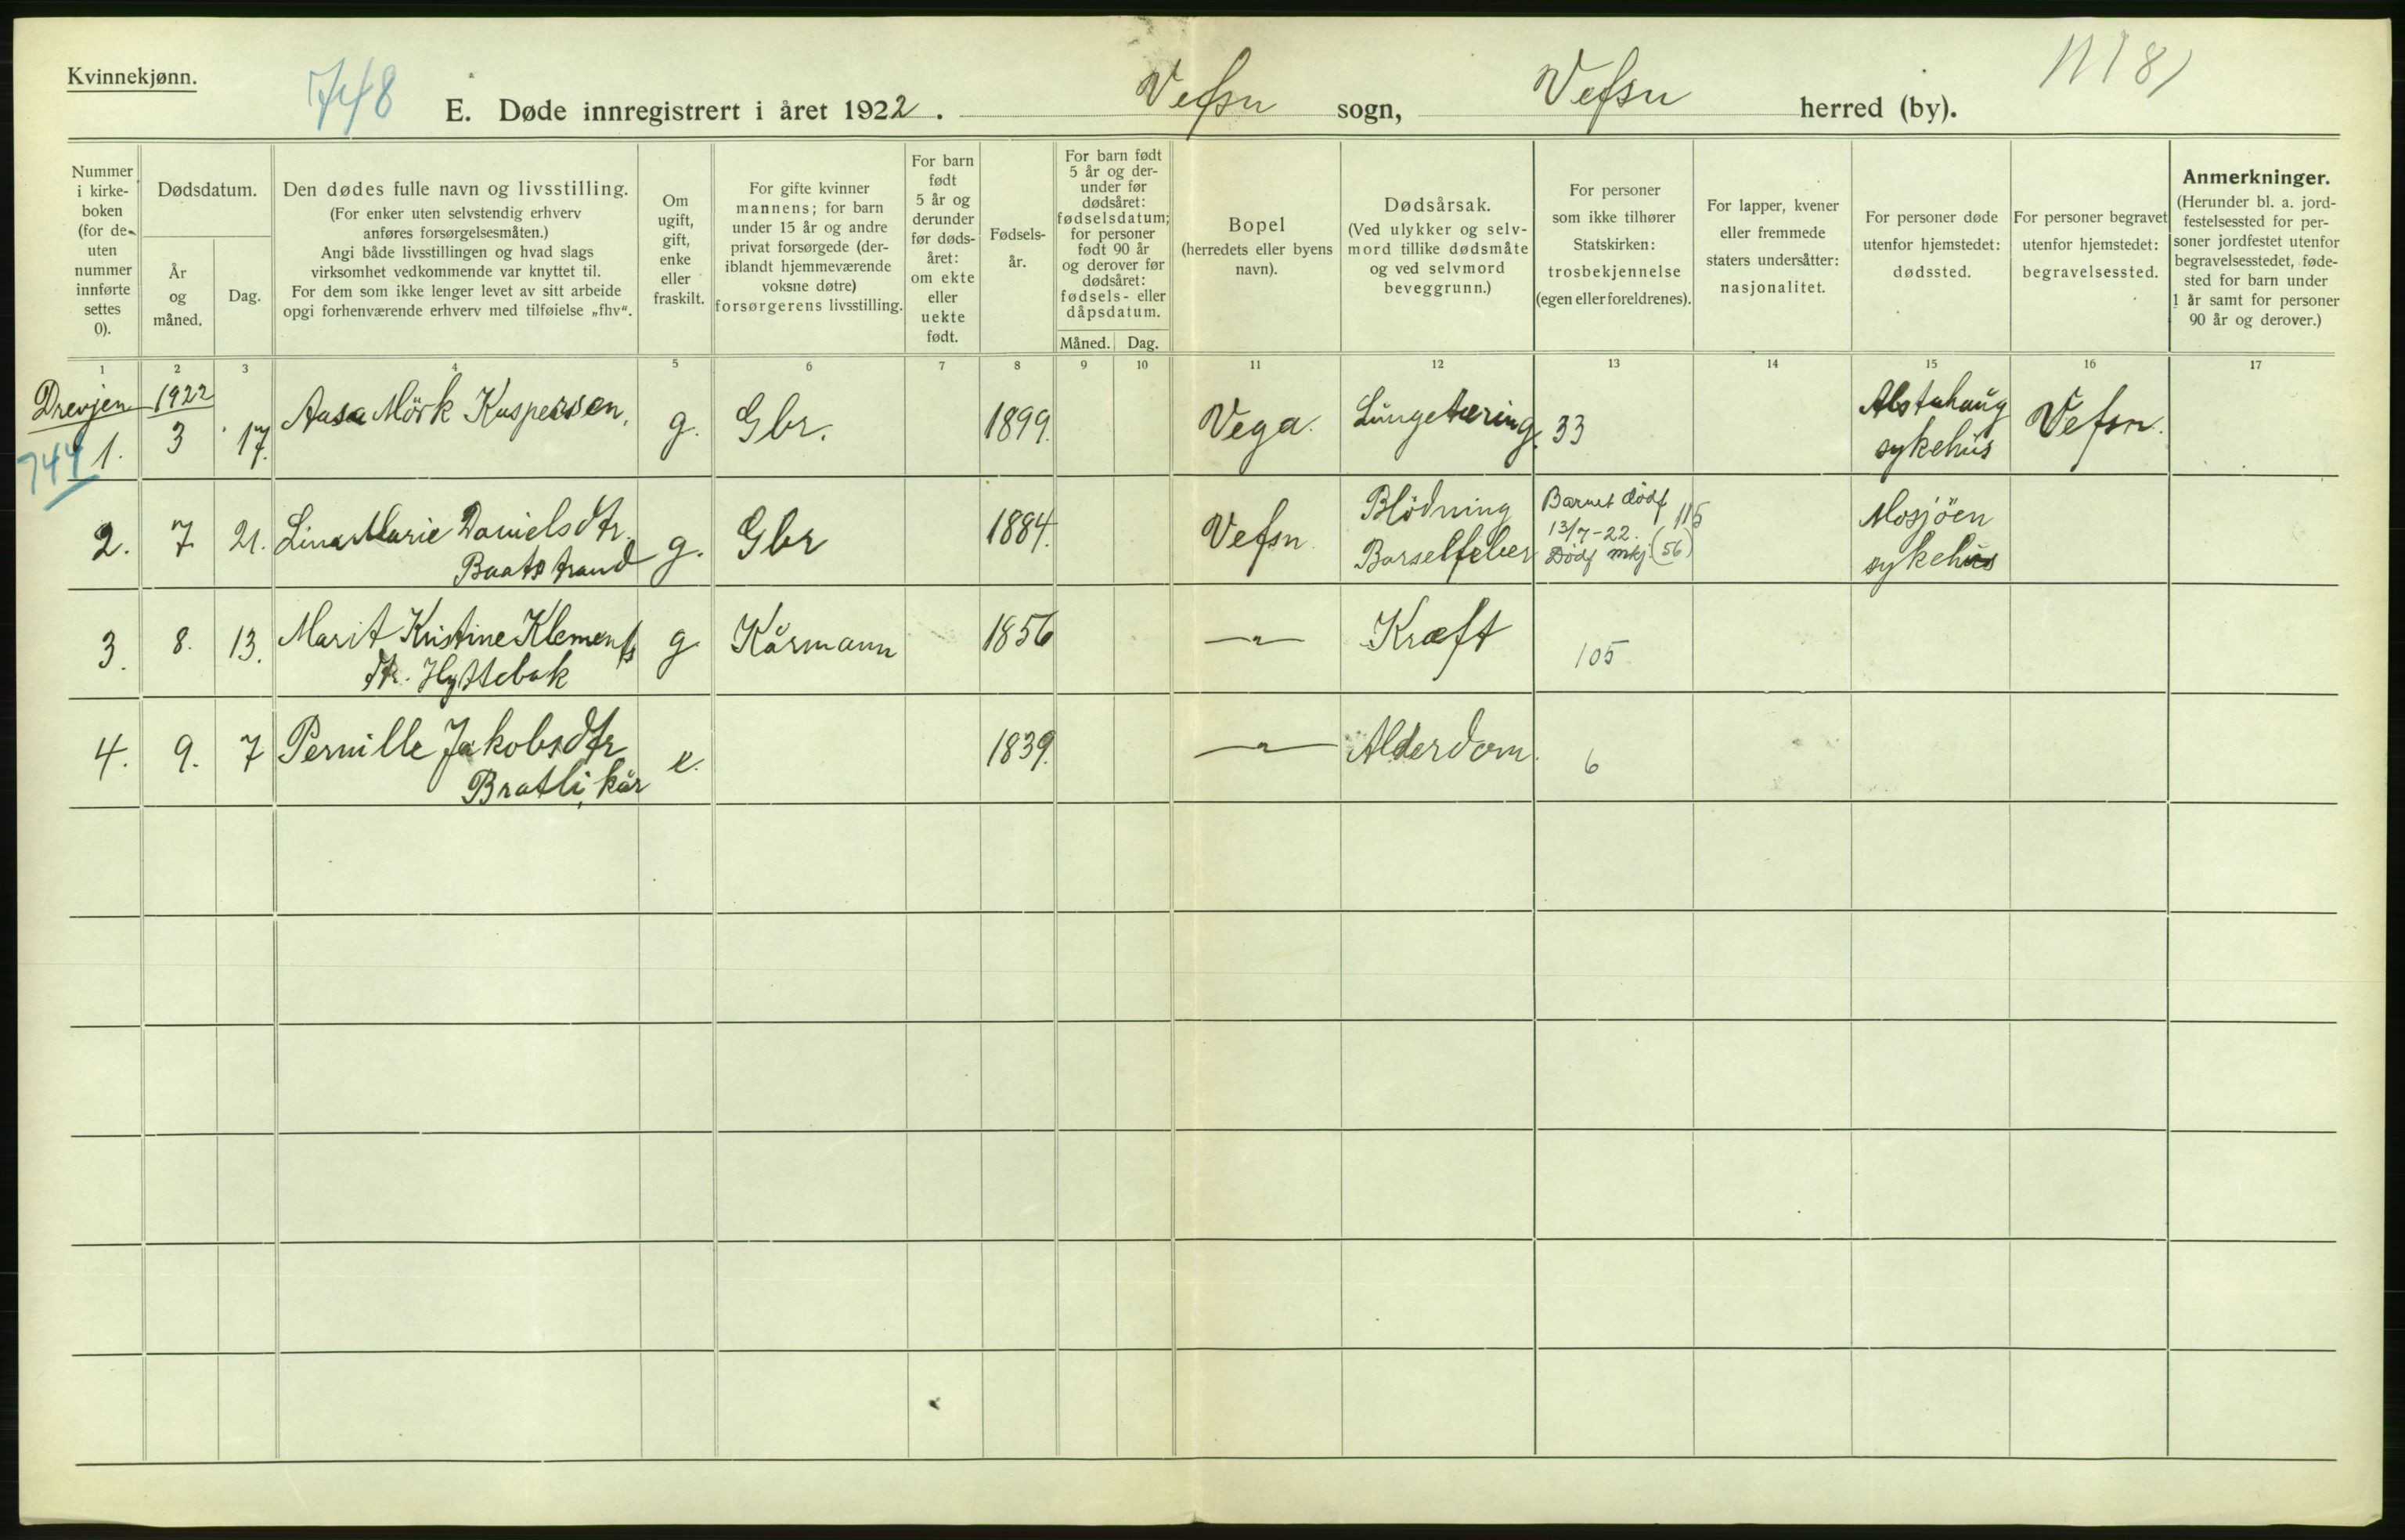 Kvinnekjønn.
748
E. Døde innregistrert i året 1922. Vefsn sogn, Vefsn herred (by).
Nummer
i kirke-
boken
(for de
uten
nummer
innførte
settes
0).
Dødsdatum.
År
og
måned.
Dag.
Den dødes fulle navn og livsstilling.
(For enker uten selvstendig erhverv
anføres forsørgelsesmåten.)
Angi både livsstillingen og hvad slags
virksomhet vedkommende var knyttet til.
For dem som ikke lenger levet av sitt arbeide
opgi forhenværende erhverv med tilføielse „fhv“.
Om
ugift,
gift,
enke
eller
fraskilt.
For gifte kvinner
mannens; for barn
under 15 år og andre
privat forsørgede (der-
iblandt hjemmeværende
voksne døtre)
forsørgerens livsstilling.
For barn
født
5 år og
derunder
før døds-
året:
om ekte
eller
uekte
født.
Fødsels-
år.
For barn født
5 år og der-
under før
dødsåret:
fødselsdatum;
for personer
født 90 år
og derover før
dødsåret:
fødsels- eller
dåpsdatum.
Måned. Dag.
Bopel
(herredets eller byens
navn).
Dødsårsak.
(Ved ulykker og selv-
mord tillike dødsmåte
og ved selvmord
beveggrunn.)
For personer
som ikke tilhører
Statskirken:
trosbekjennelse
(egen eller foreldrenes).
For lapper, kvener
eller fremmede
staters undersåtter:
nasjonalitet.
For personer døde
utenfor hjemstedet:
dødssted.
For personer begravet
utenfor hjemstedet:
begravelsessted.
Anmerkninger.
(Herunder bl. a. jord-
festelsessted for per-
soner jordfestet utenfor
begravelsesstedet, føde-
sted for barn under
1 år samt for personer
90 år og derover.)
1 2 3 4 5 6 7 8 9 10 11 12 13 14 15 16 17
Drevjen 1922
744 1. 3 17. Aasa Mörk Kaspersen, g. Gbr. 1899. Vega. Lungetæring. 33 Alstahaug
sykehus Vefsn.
2. 7 21. Lina Marie Danielsdtr.
Baatstrand g. Gbr 1884. Vefsn. Blödning
Barselfeber Barnet dødf 115
13/7-22.
Dødf mkj. (56) Mosjöen
sykehus
3. 8. 13. Marit Kristine Klements
dtr. Hyttebak g Kårmann 1856 —"— Kræft 105
4. 9. 7 Pernille Jakobsdtr
Bratli, kår e. 1839. —"— Alderdom. 6